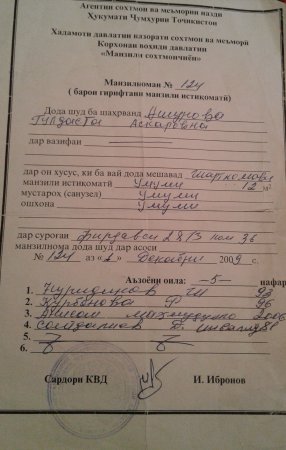 Агентии сохтмон ва меъмории назди
Ҳукумати Ҷумҳурии Тоҷикистон
Хадамоти давлатии назорати сохтмон ва меъморӣ
Корхонаи воҳиди давлатии
«Манзили сохтмончиён»
Манзилкоман № 124
( барои гирифтани манзили истиқоматӣ )
Дода шуд ба шаҳрванд Ашурова
Гулдаста Аскаровна
дар вазифаи
дар он хусус, ки ба вай дода мешавад
манзили истиқоматӣ Умуми 12 м²
мустароҳ (санузел) Умуми
ошхона Умуми
дар суроғаи Фирдавси 2 ком 36
манзилнома дода шуд дар асоси
№ 124 аз «1» Декабри 2009 с.
Аъзоёни оила: –5– нафар
1. 93
2. Курбанова Ф 96
3. 2006
4.
5.
6.
Сардори КВД И. Ибронов